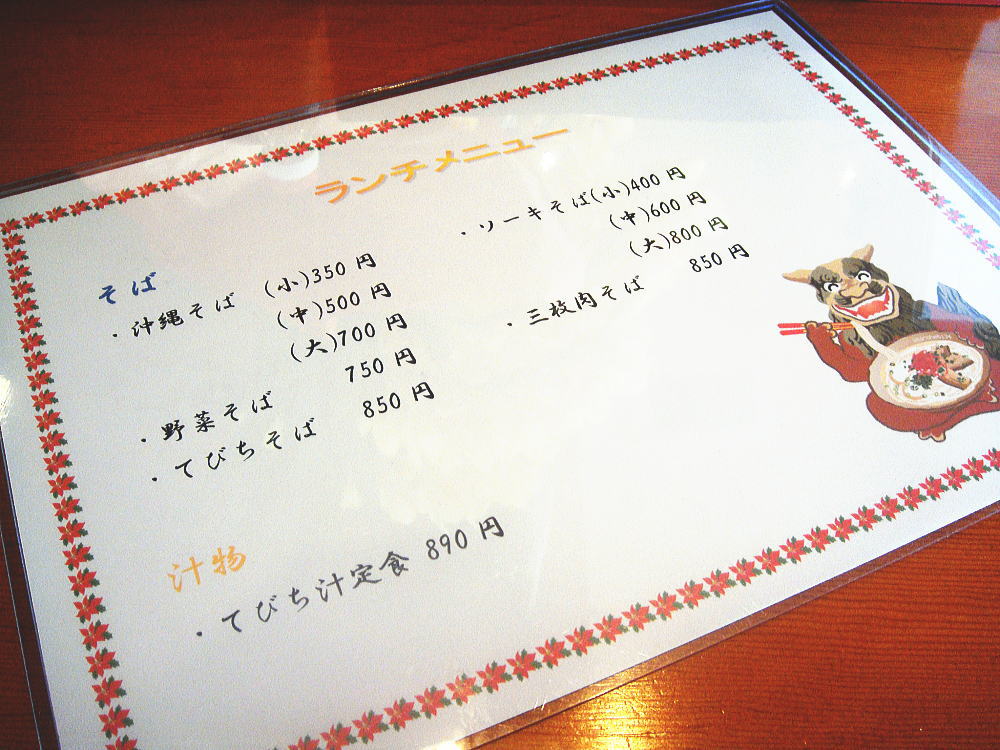 ランチメニュー
そば
・沖縄そば (小)350円
(中)500円
(大)700円
・野菜そば 750円
・てびちそば 850円
・ソーキそば(小)400円
(中)600円
(大)800円
・三枚肉そば 850円
汁物
・てびち汁定食 890円